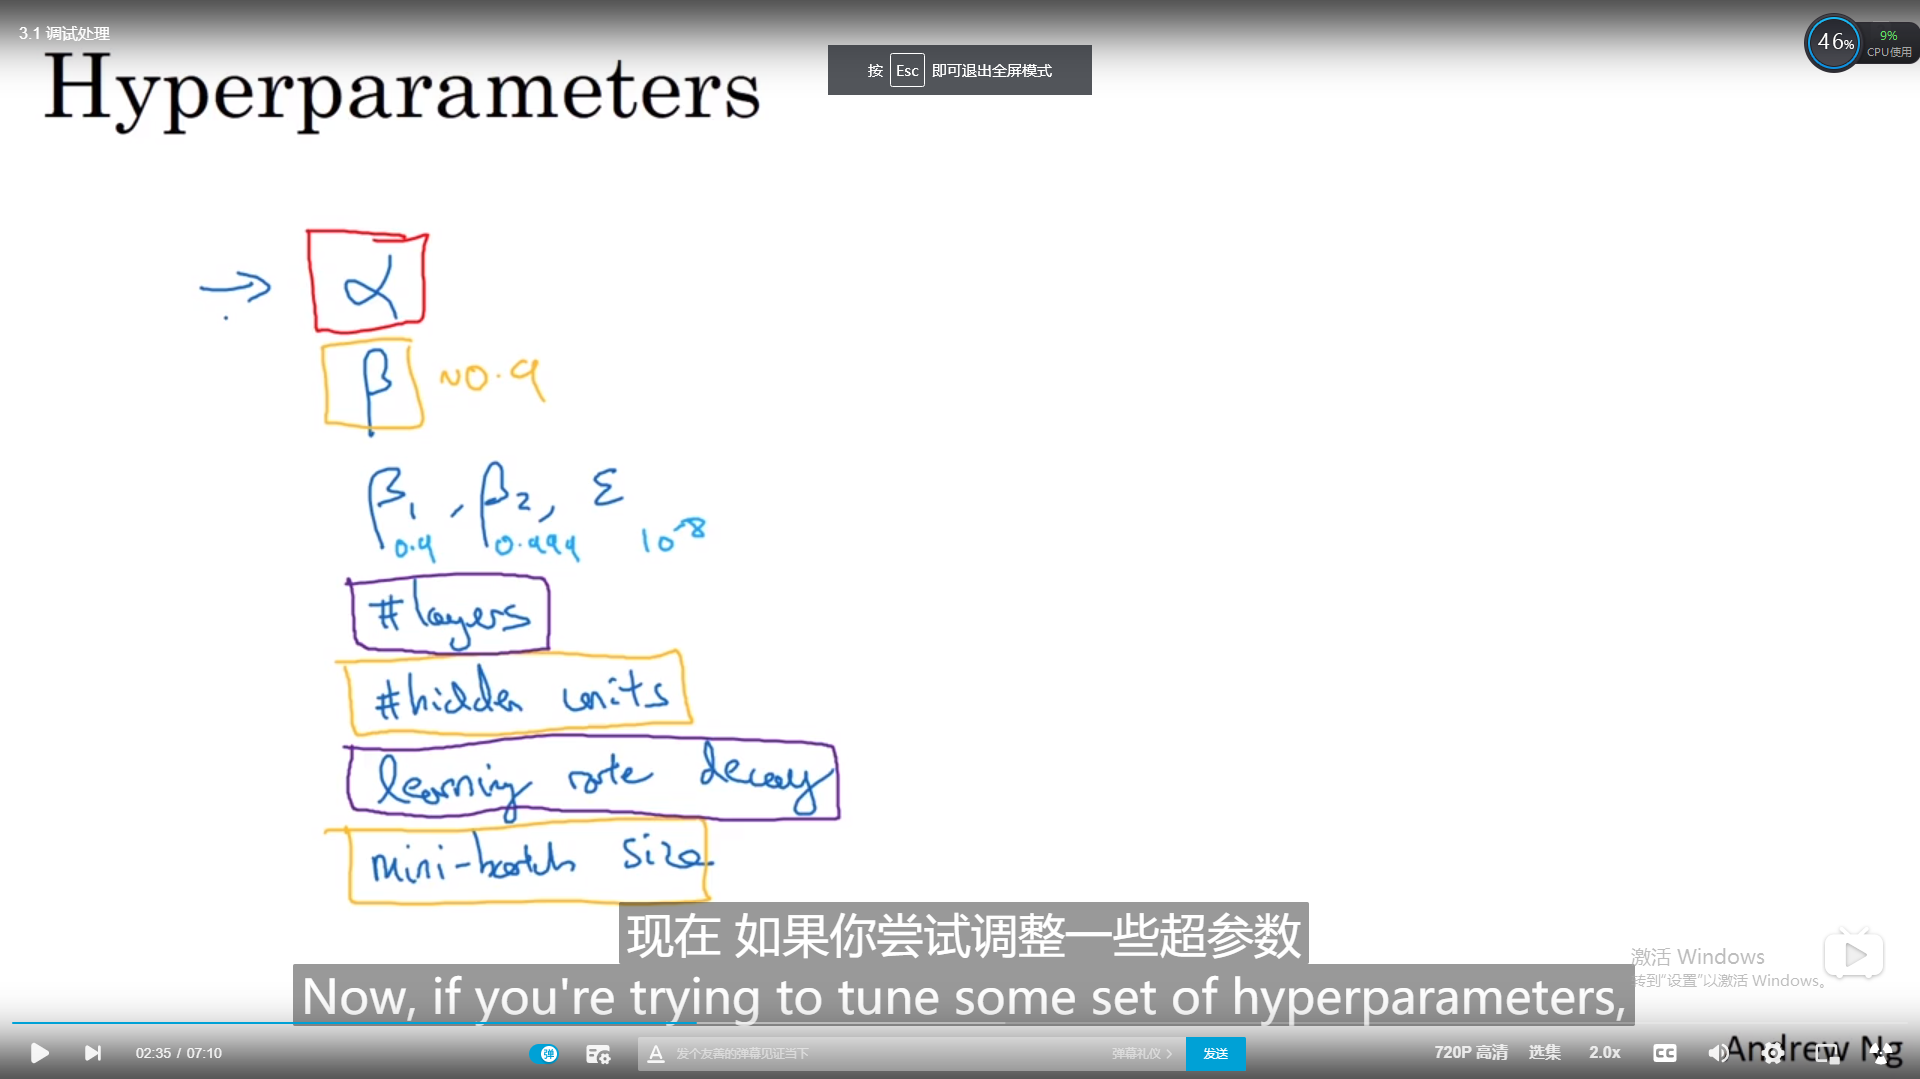 3.1 调试处理
Hyperparameters
按 Esc 即可退出全屏模式
46%
9%
CPU使用
→ α
β ~0.9
β₁, β₂, ε
0.9 0.999 10⁻⁸
#layers
#hidden units
learning rate decay
mini-batch size
现在 如果你尝试调整一些超参数
Now, if you're trying to tune some set of hyperparameters,
激活 Windows
转到"设置"以激活 Windows。
02:35 / 07:10
弹
A 发个友善的弹幕见证当下
弹幕礼仪 >
发送
720P 高清
选集
2.0x
CC
Andrew Ng